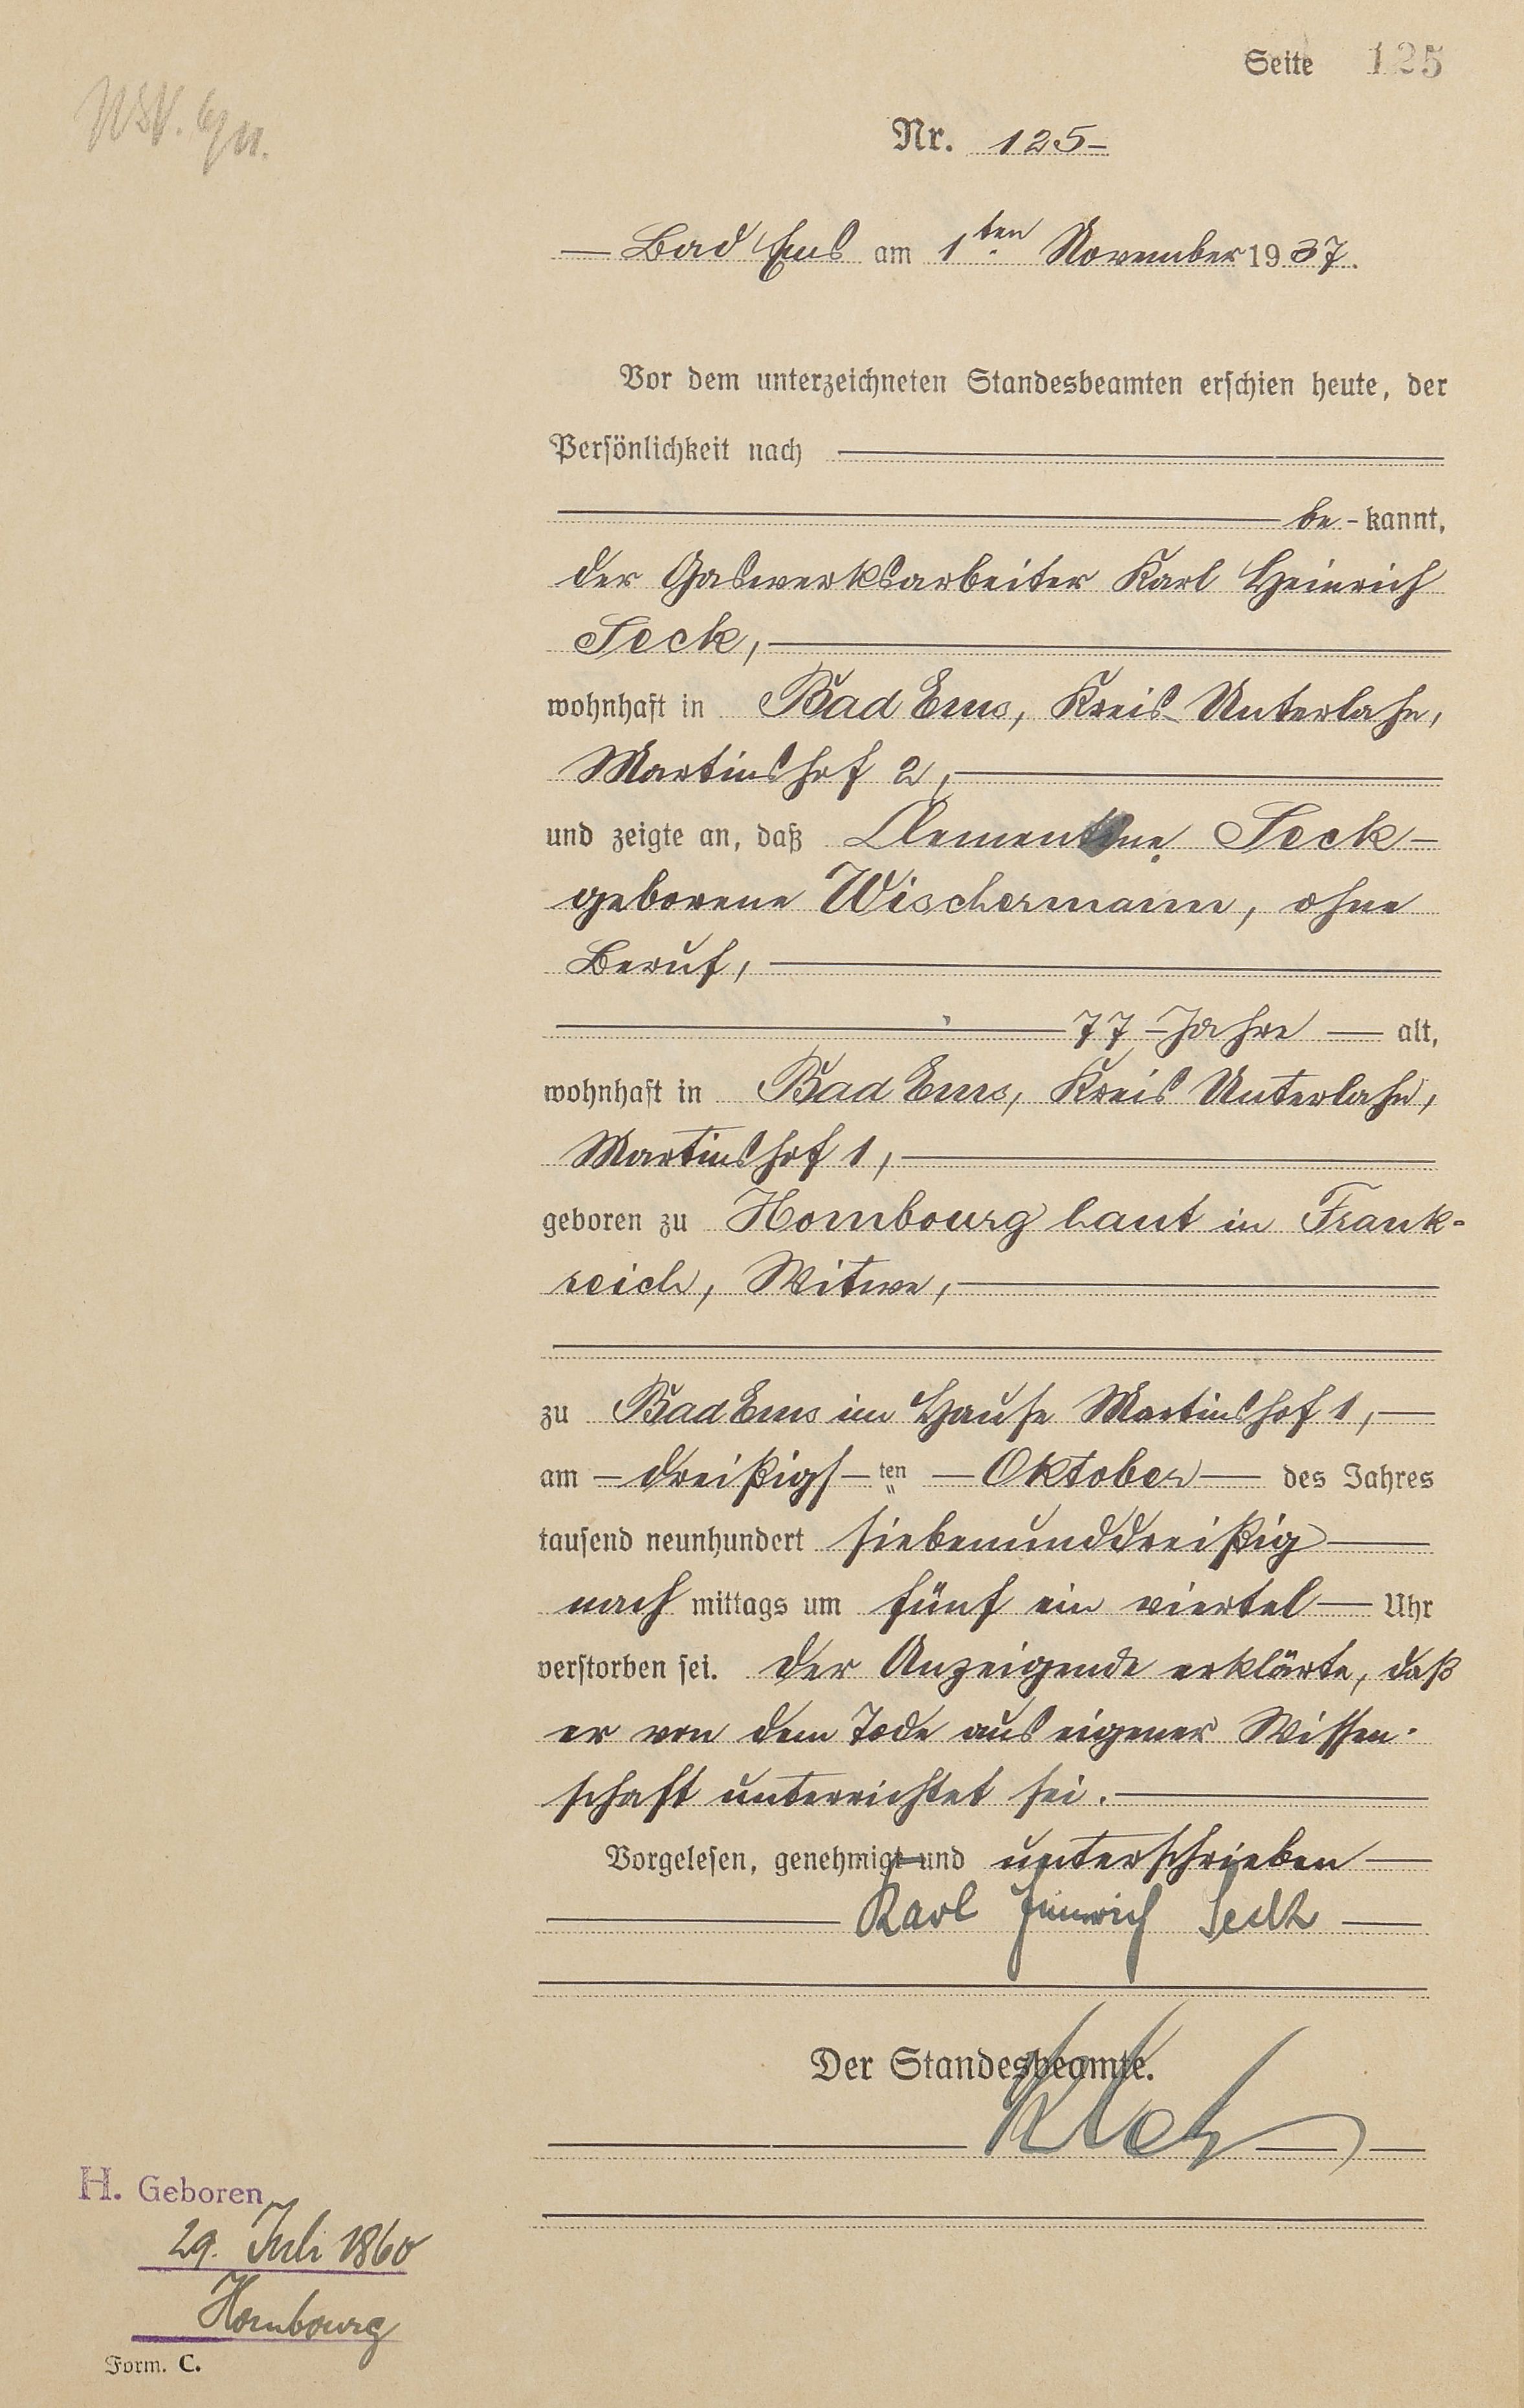 Seite 125
Nr. 125-
— Bad Ems am 1ten November 1937.
Vor dem unterzeichneten Standesbeamten erschien heute, der
Persönlichkeit nach
be-kannt,
der Gaswerksarbeiter Karl Heinrich
Seck,
wohnhaft in Bad Ems, Kreis Unterlahn,
Martinshof 2,
und zeigte an, daß Clementine Seck-
geborene Wischermann, ohne
Beruf,
77-Jahre — alt,
wohnhaft in Bad Ems, Kreis Unterlahn,
Martinshof 1,
geboren zu Hombourg haut in Frank-
reich, Witwe,
zu Bad Ems im Hause Martinshof 1,
am — dreißigs-ten — Oktober — des Jahres
tausend neunhundert siebenunddreißig
nach mittags um fünf ein viertel — Uhr
verstorben sei. Der Anzeigende erklärte, daß
er von dem Tode aus eigener Wissen-
schaft unterrichtet sei.
Vorgelesen, genehmigt und unterschrieben
Karl Heinrich Seck
Der Standesbeamte.
H. Geboren
29. Juli 1860
Hombourg
Form. C.